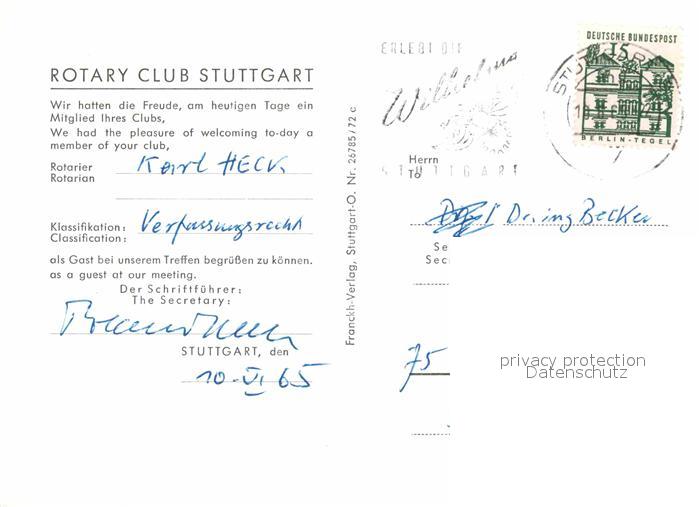 ROTARY CLUB STUTTGART
Wir hatten die Freude, am heutigen Tage ein
Mitglied Ihres Clubs,
We had the pleasure of welcoming to-day a
member of your club,
Rotarier Karl HECK
Rotarian
Klassifikation: Verfassungsrecht
Classification:
als Gast bei unserem Treffen begrüßen zu können.
as a guest at our meeting.
Der Schriftführer:
The Secretary:
STUTTGART, den
10. VI 65
Franckh-Verlag, Stuttgart-O. Nr. 26785/72 c
ERLEBT DIE
Wilhelma
STUTTGART
DEUTSCHE BUNDESPOST
15
BERLIN-TEGEL
Herrn
To
Dr. ing Becker
Se
Sec
75
privacy protection
Datenschutz